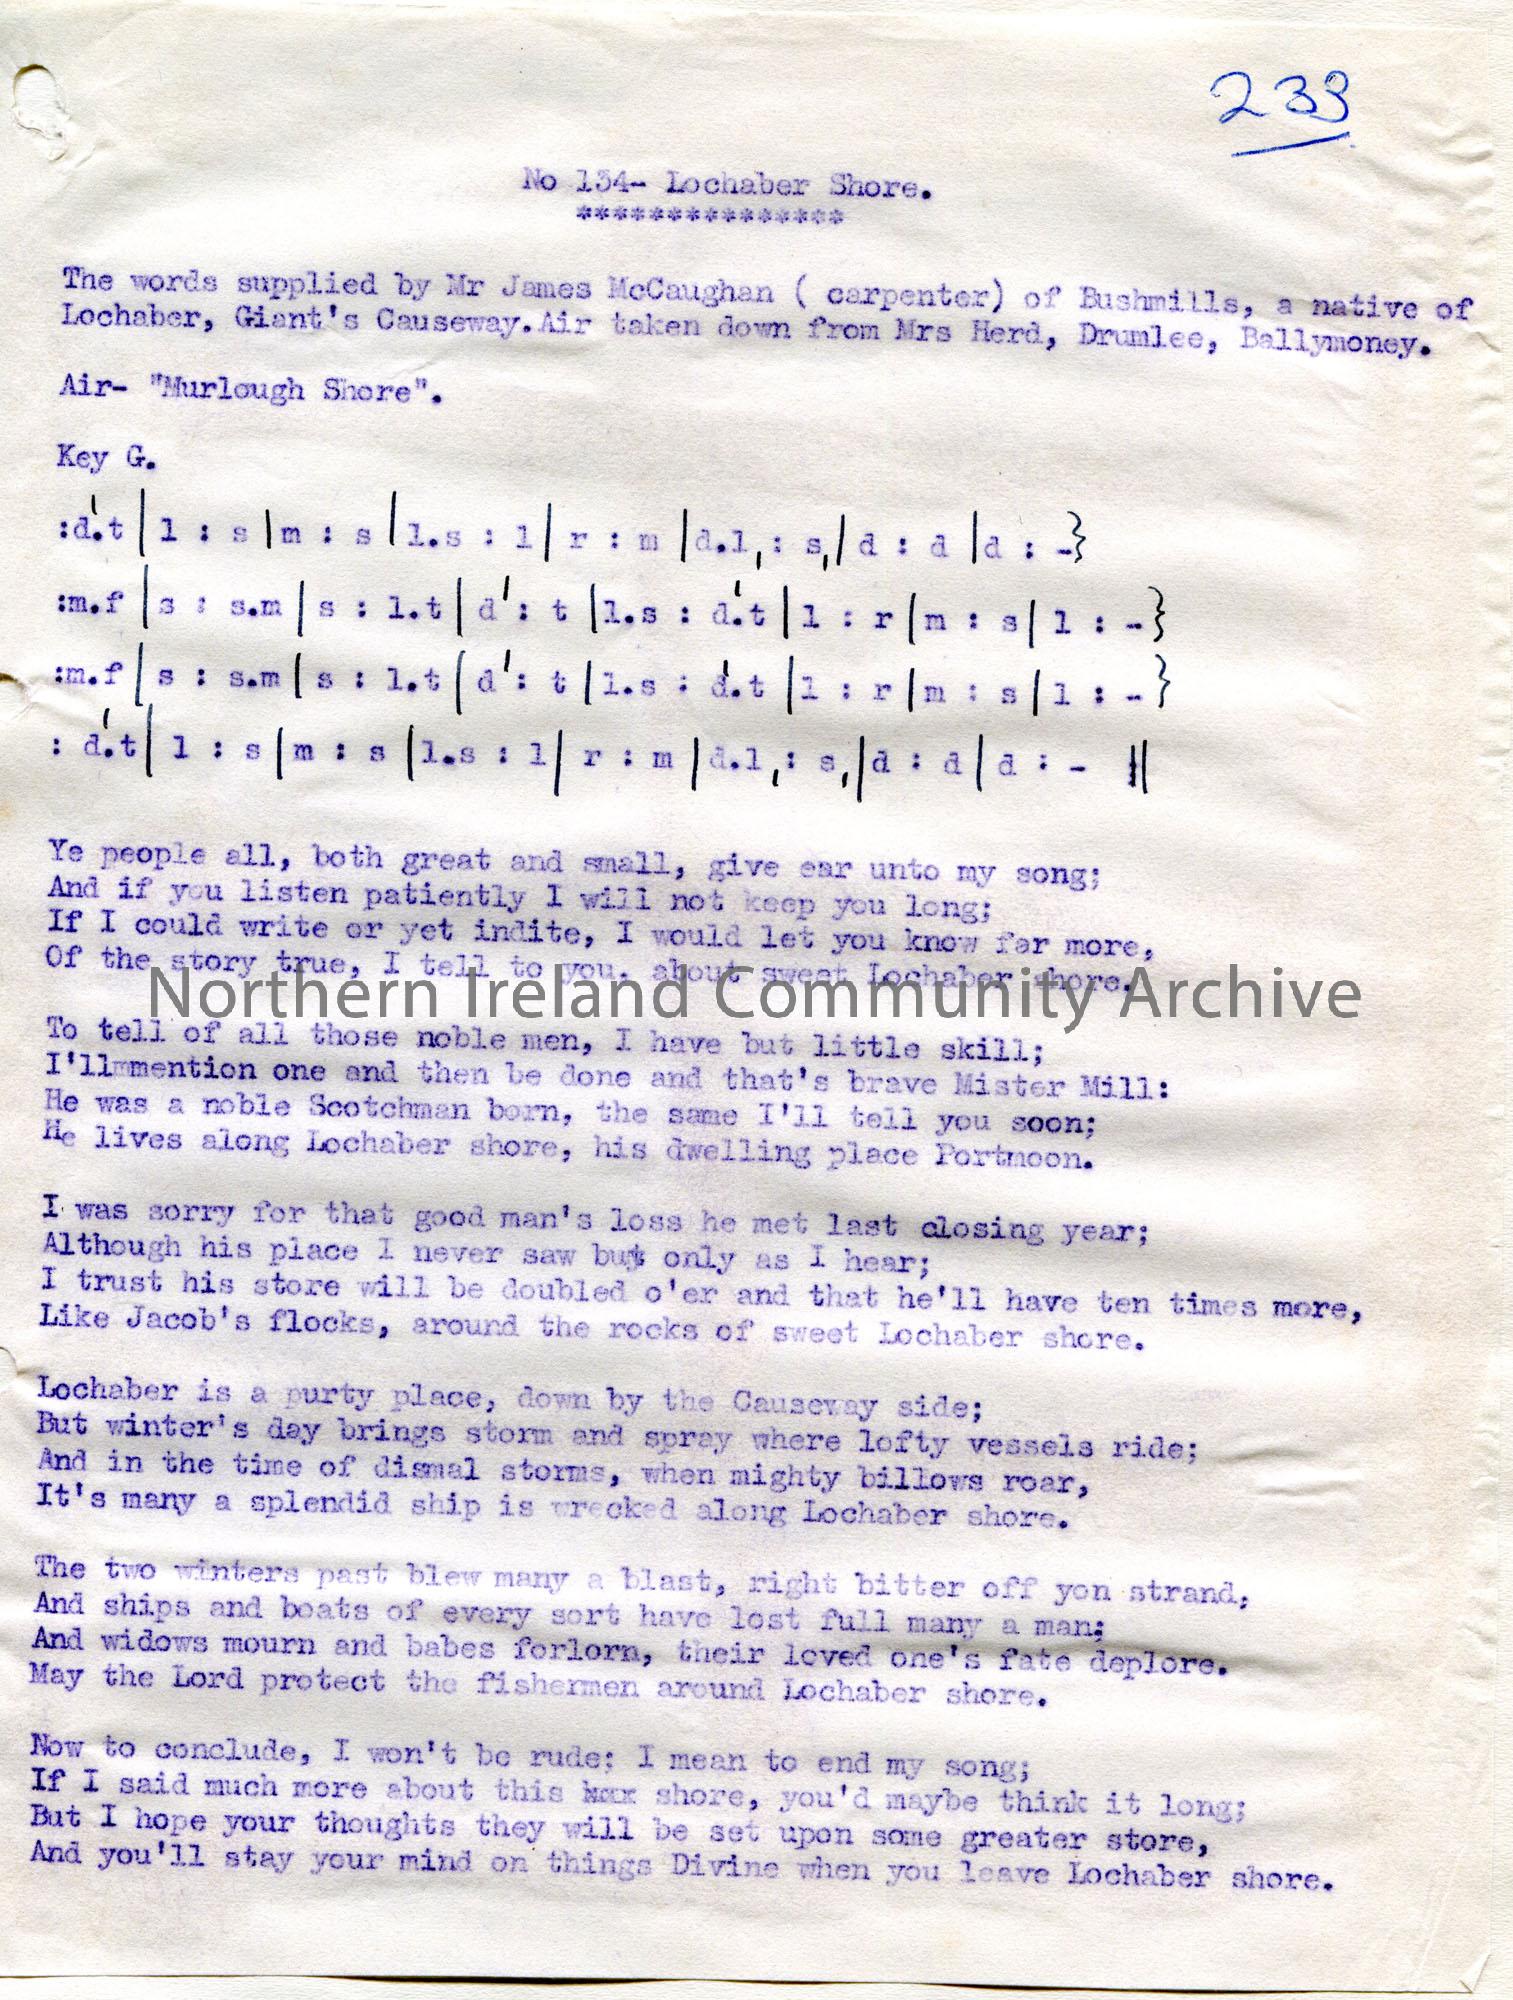 233
No 134- Lochaber Shore.
***************
The words supplied by Mr James McCaughan ( carpenter) of Bushmills, a native of
Lochaber, Giant's Causeway.Air taken down from Mrs Herd, Drumlee, Ballymoney.
Air- "Murlough Shore".
Key G.
:d'.t | l : s | m : s | l.s : l | r : m | d.l, : s, | d : d | d : - }
:m.f | s : s.m | s : l.t | d' : t | l.s : d'.t | l : r | m : s | l : - }
:m.f | s : s.m | s : l.t | d' : t | l.s : d'.t | l : r | m : s | l : - }
: d'.t | l : s | m : s | l.s : l | r : m | d.l, : s, | d : d | d : - ||
Ye people all, both great and small, give ear unto my song;
And if you listen patiently I will not keep you long;
If I could write or yet indite, I would let you know far more,
Of the story true, I tell to you, about sweet Lochaber shore.
Northern Ireland Community Archive
To tell of all those noble men, I have but little skill;
I'llmmention one and then be done and that's brave Mister Mill:
He was a noble Scotchman born, the same I'll tell you soon;
He lives along Lochaber shore, his dwelling place Portmoon.
I was sorry for that good man's loss he met last closing year;
Although his place I never saw but only as I hear;
I trust his store will be doubled o'er and that he'll have ten times more,
Like Jacob's flocks, around the rocks of sweet Lochaber shore.
Lochaber is a purty place, down by the Causeway side;
But winter's day brings storm and spray where lofty vessels ride;
And in the time of dismal storms, when mighty billows roar,
It's many a splendid ship is wrecked along Lochaber shore.
The two winters past blew many a blast, right bitter off yon strand,
And ships and boats of every sort have lost full many a man;
And widows mourn and babes forlorn, their loved one's fate deplore.
May the Lord protect the fishermen around Lochaber shore.
Now to conclude, I won't be rude; I mean to end my song;
If I said much more about this shore, you'd maybe think it long;
But I hope your thoughts they will be set upon some greater store,
And you'll stay your mind on things Divine when you leave Lochaber shore.